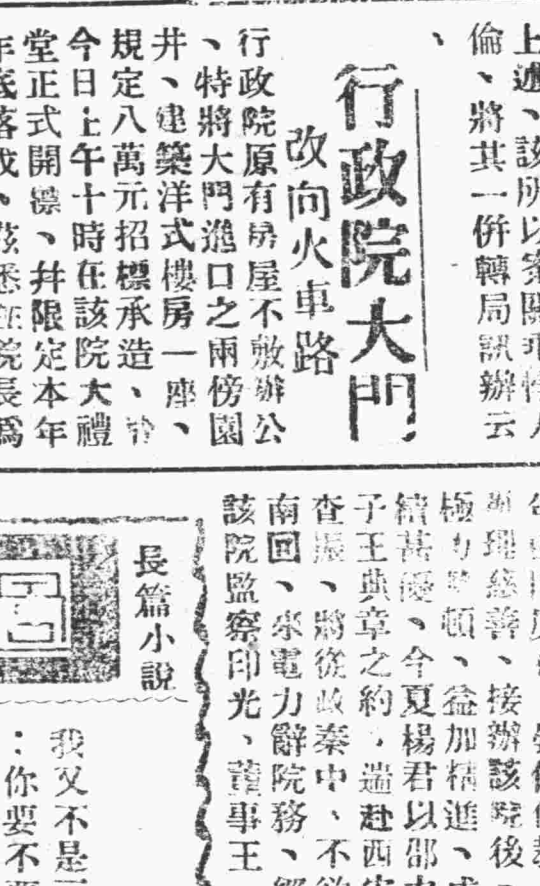 上述、該所以案關
倫、將其一併轉局訊辦云
、
行政院大門
改向火車路
行政院原有房屋不敷辦公
、特將大門進口之兩傍園
井、建築洋式樓房一座、
規定八萬元招標承造、
今日上午十時在該院大禮
堂正式開標、並限定本年
年底落成、茲悉該院長爲
辦理慈善、接辦該院後、
極力整頓、益加精進、成
績甚優、今夏楊君以邵
子王典章之約、遄赴西安
查賑、將從政秦中、不欲
南回、來電力辭院務、經
該院監察印光、董事王
長篇小說
我又不是
：你要不要